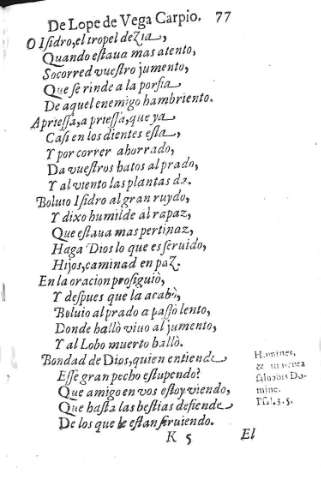 De Lope de Vega Carpio. 77
O Isidro, el tropel dezia,
Quando estaua mas atento,
Socorred vuestro jumento,
Que se rinde a la porfia
De aquel enemigo hambriento.
Apriessa, a priessa, que ya
Casi en los dientes esta,
Y por correr ahorrado,
Da vuestros hatos al prado,
Y al viento las plantas da.
Boluio Isidro al gran ruydo,
Y dixo humilde al rapaz,
Que estaua mas pertinaz,
Haga Dios lo que es seruido,
Hijos, caminad en paz.
En la oracion prosiguiò,
Y despues que la acabò,
Boluio al prado a passo lento,
Donde hallò viuo al jumento,
Y al Lobo muerto hallò.
Bondad de Dios, quien entiende
Esse gran pecho estupendo?
Que amigo en vos estoy viendo,
Que hasta las bestias defiende
De los que le estan siruiendo.
Homines,
& iumenta
saluabis Do-
mine.
Psal. 35.
K 5 El